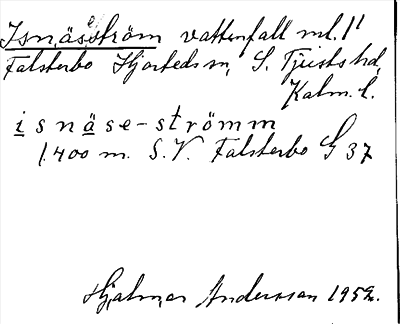 Isnäseström vattenfall ml. 1'
Falsterbo Hjorteds sn, S. Tjusts hd,
Kalm. l.
isnäse-strömm
1.400 m. S.V. Falsterbo G 37
Hjalmar Andersson 1952.